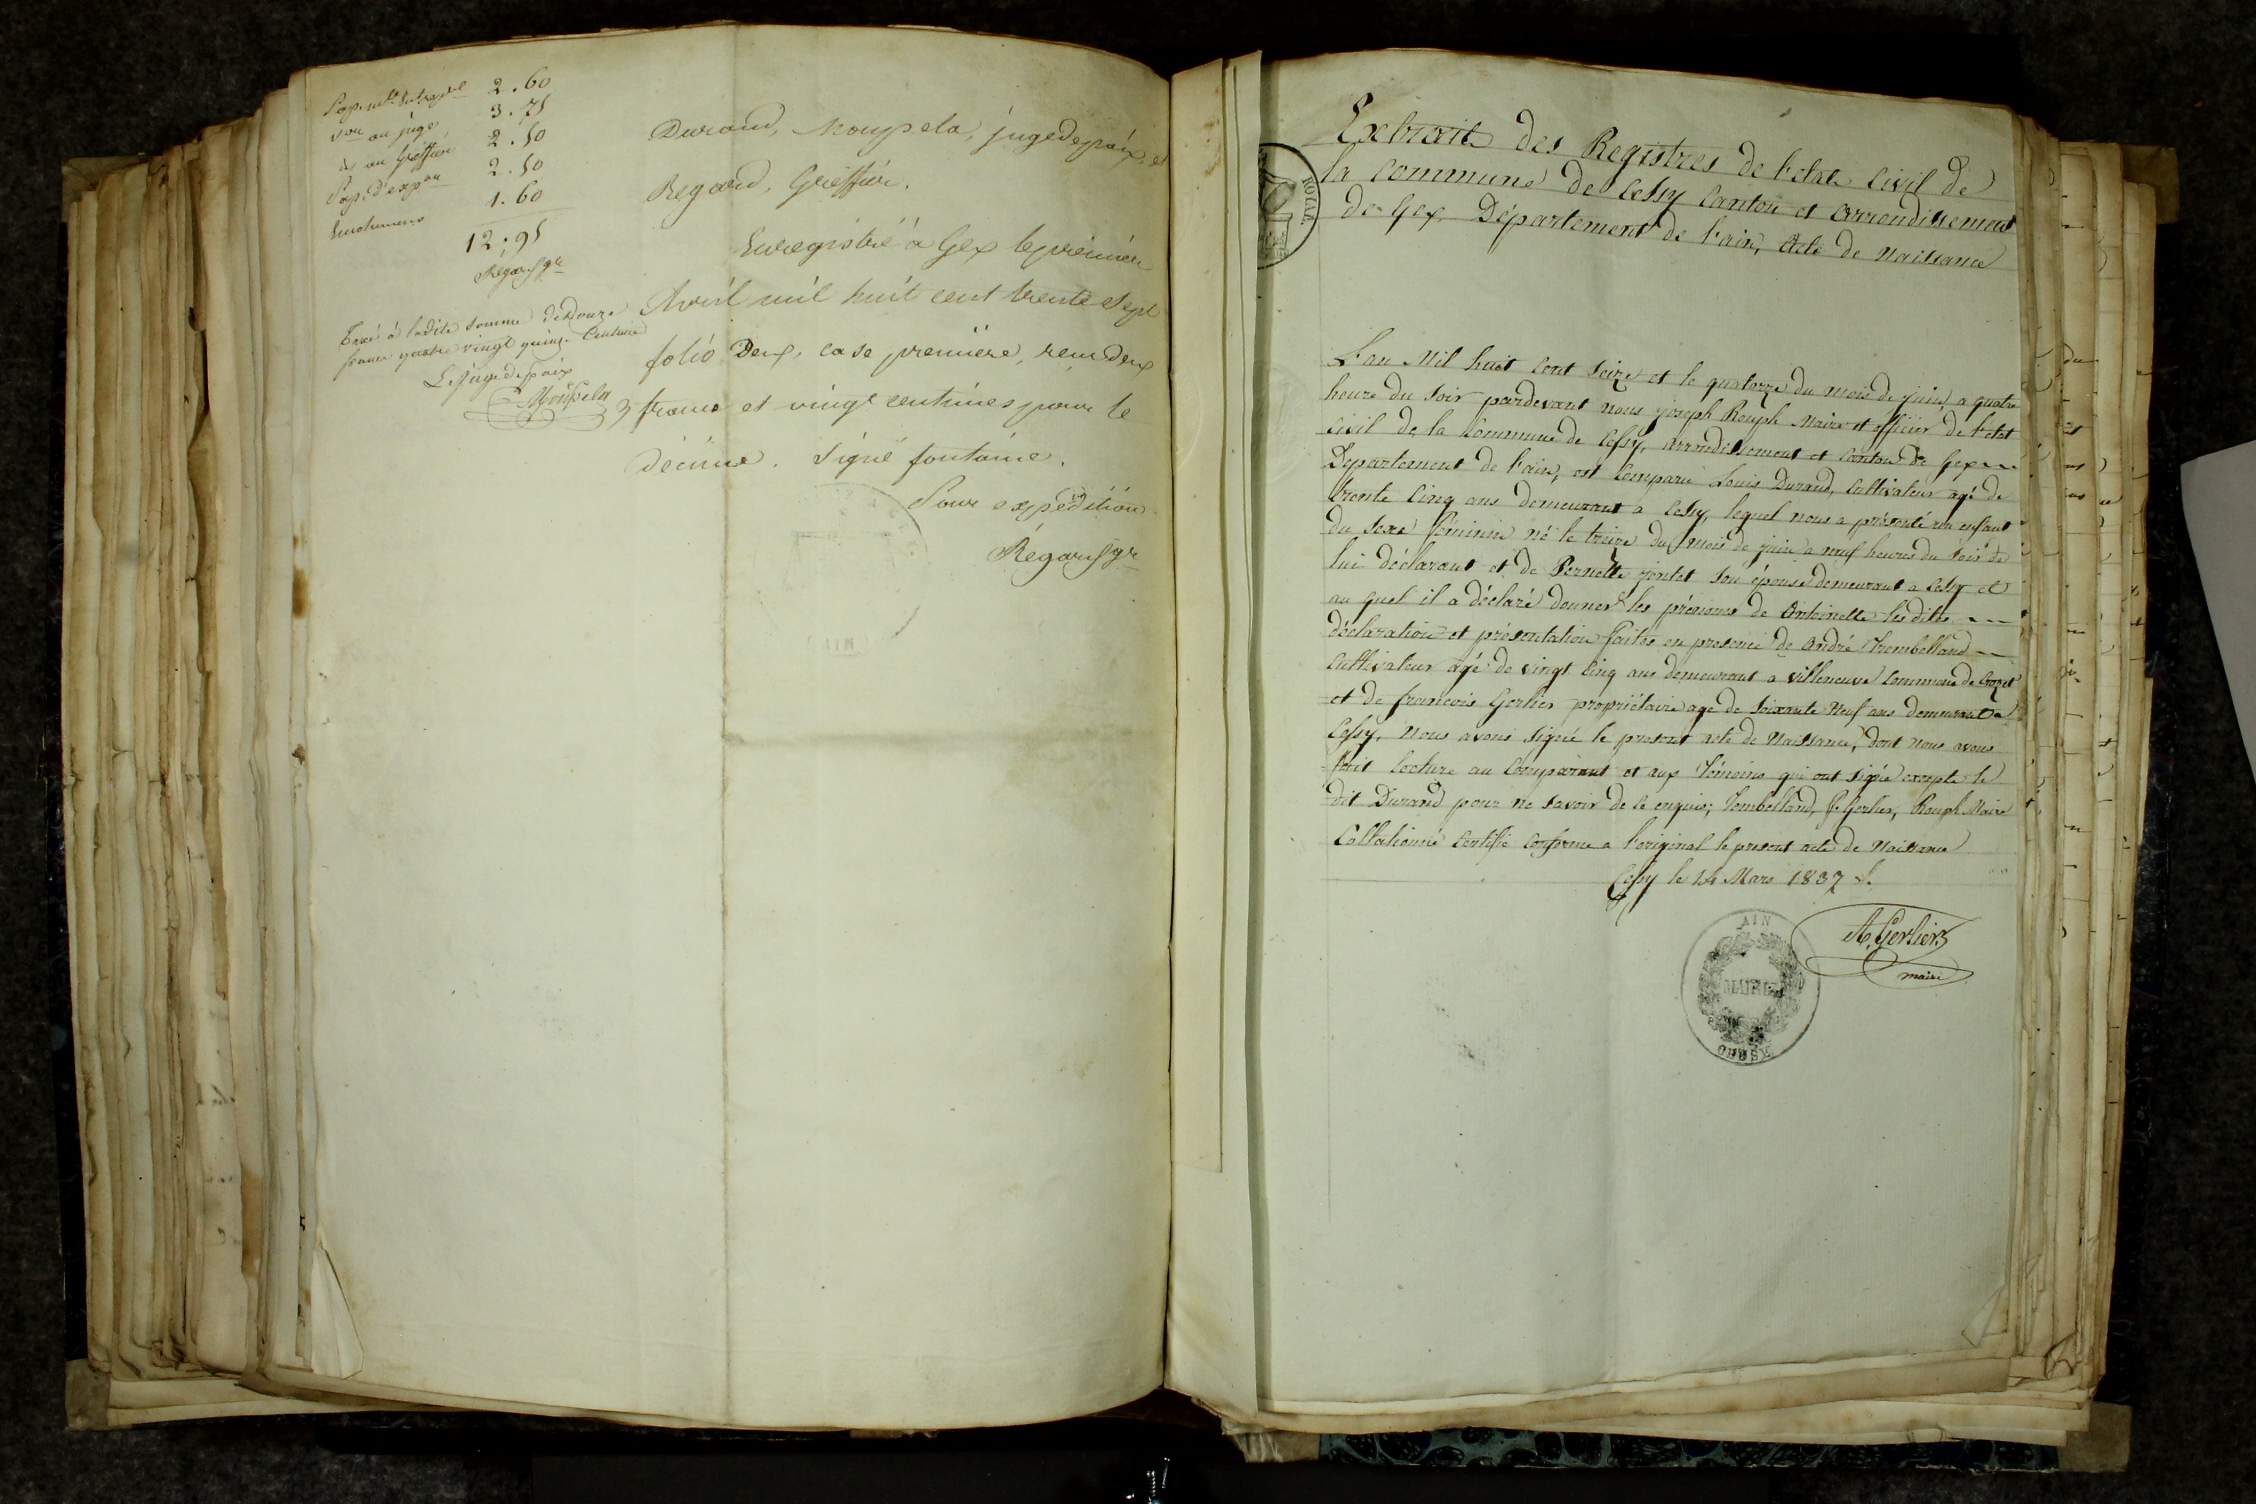 2.60
vou au juge 3.75
d. au Greffier 2.50
2.50
Emoluments 1.60
12.95
Regard gr
Taxé à ladite somme de Douze
francs quatre vingt quinze Centimes
Le juge de paix
Moupela
Durand, Moupela, juge de paix, et
Regard, Greffier.
Enregistré à Gex le premier
Avril mil huit cent trente sept
folio Deux, case première, reçu deux
francs et vingt centimes pour le
décime. Signé fontaine.
Pour expédition
Regard gr
ROYAL
Extrait des Registres de l'etat Civil de
la Commune de Cessy Canton et arrondissement
de Gex, Département de l'ain, Acte de Naissance
L'an Mil huit Cent Seize et le quatorze du mois de juin, a quatre
heure du soir pardevant nous joseph Rouph Maire et officier de l'etat
Civil de la Commune de Cessy, arrondissement et Canton de Gex
Departement de l'ain, est Comparu Louis Durand, Cultivateur agé de
trente Cinq ans demeurant a Cessy, lequel nous a présenté un enfant
du Sexe féminin né le treize du mois de juin a neuf heures du soir de
lui déclarant et de Pernette jontet son épouse demeurant a Cessy et
au quel il a déclaré donner les prénoms de Antoinette les dites
déclaration et présentation faites en presence de André Trombelland
Cultivateur agé de vingt Cinq ans demeurant a villeneuve Commune de Crozet
et de francois Gerlier propriétaire age de soixante Neuf ans demeurant a
Cessy, Nous avons signé le present acte de Naissance, dont nous avons
fait lecture au Comparant et aux Témoins qui ont signé excepte le
dit Durand pour ne savoir de ce enquis; Tombelland, f. Gerlier, Rouph Maire
Collationné Certifié Conforme a l'original le present acte de Naissance
Cessy le 14 Mars 1837
A. Gerlier
maire
AIN
MAIRIE